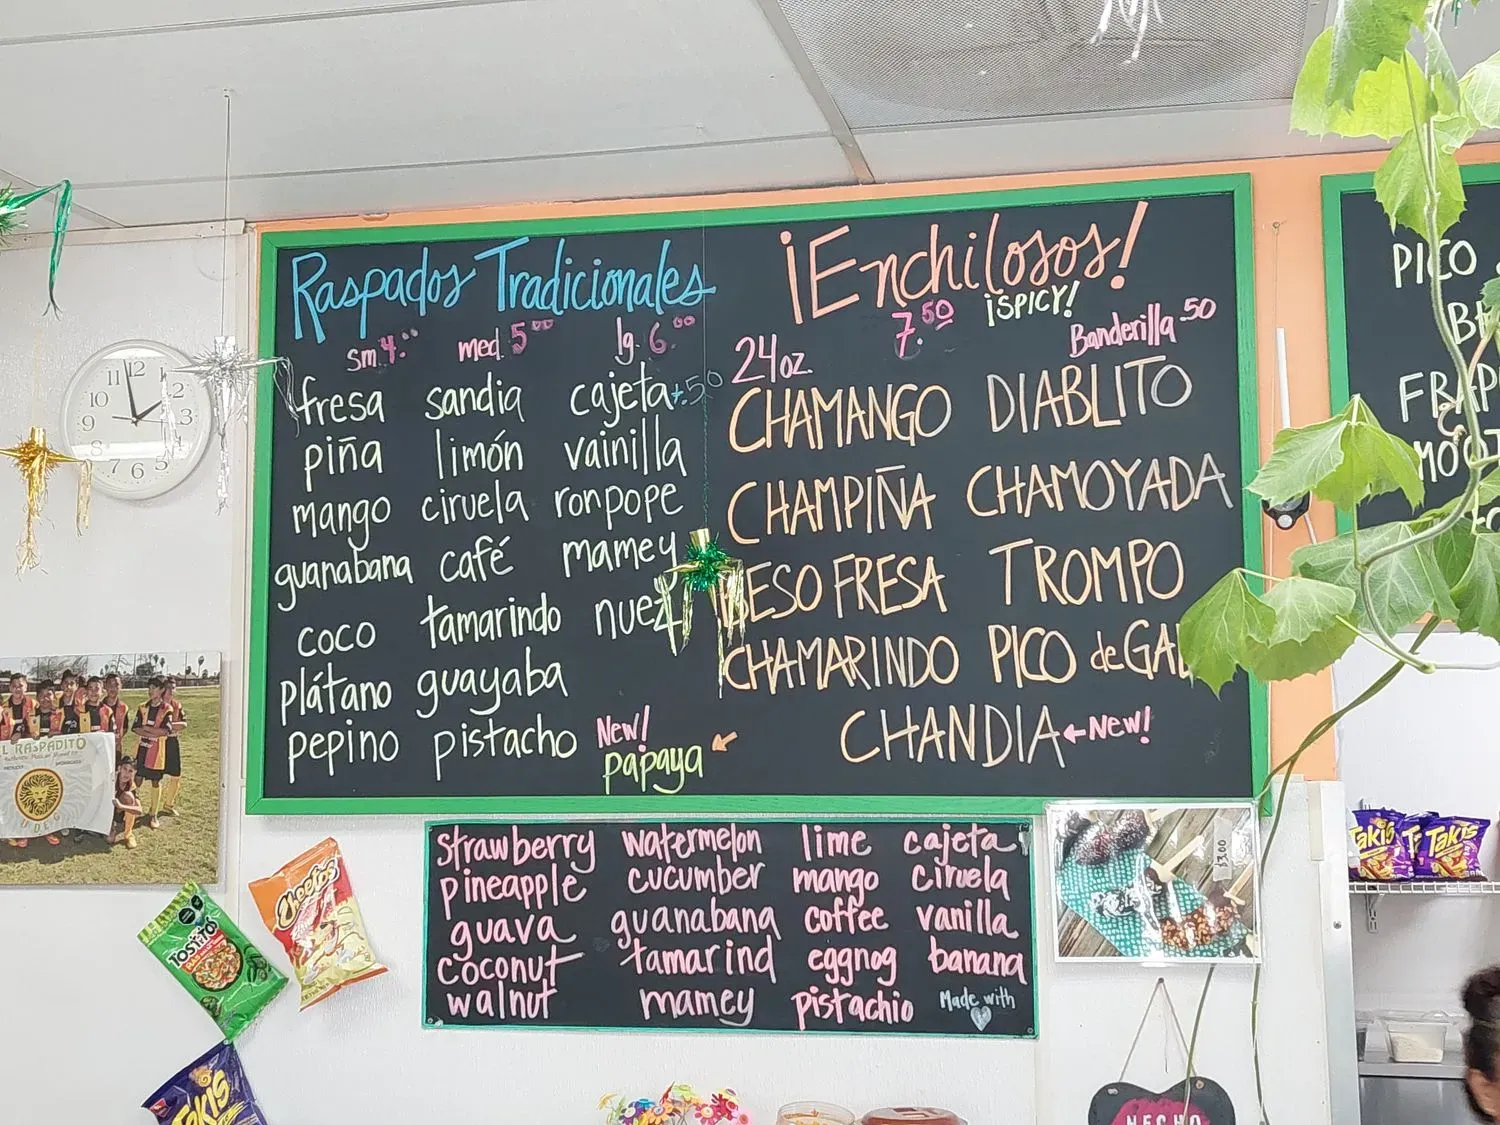 Raspados Tradicionales
sm 4.00 med. 5.00 lg. 6.00
fresa sandia cajeta +.50
piña limón vainilla
mango ciruela ronpope
guanabana café mamey
coco tamarindo nuez
plátano guayaba
pepino pistacho New! papaya
¡Enchilosos!
7.50 ¡SPICY!
24oz. Banderilla .50
CHAMANGO DIABLITO
CHAMPIÑA CHAMOYADA
BESO FRESA TROMPO
CHAMARINDO PICO de GAL
CHANDIA ←New!
strawberry watermelon lime cajeta
pineapple cucumber mango ciruela
guava guanabana coffee vanilla
coconut tamarind eggnog banana
walnut mamey pistachio Made with
PICO
FRAP
MO
11 12 1 2 3 5 6 7 8 9 10
EL RASPADITO
UDEG
Cheetos
TOSTITOS
TAKIS
Takis
Takis
$3.00
HECHO